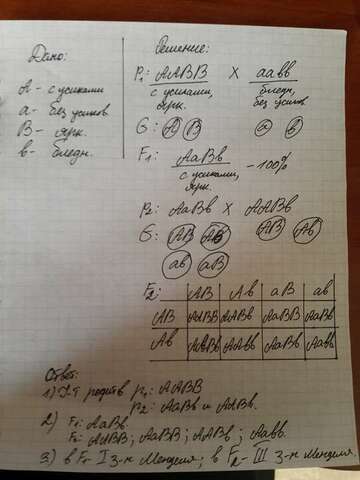 Дано:
А - с усиками
а - без усиков
В - ярк.
в - бледн.
Решение:
P₁: ААВВ х аавв
с усиками, ярк. бледн, без усиков
G: А В а в
F₁: АаВв - 100%
с усиками, ярк.
P₂: АаВв х ААВв
G: АВ Ав АВ Ав
ав аВ
F₂: АВ Ав аВ ав
АВ ААВВ ААВв АаВВ АаВв
Ав ААВв ААвв АаВв Аавв
Ответ:
1) P₁: ААВВ
P₂: АаВв и ААВв.
2) F₁: АаВв.
F₂: ААВВ; АаВВ; ААВв; Аавв.
3) в F₁ - I З-н Менделя; в F₂ - III З-н Менделя.